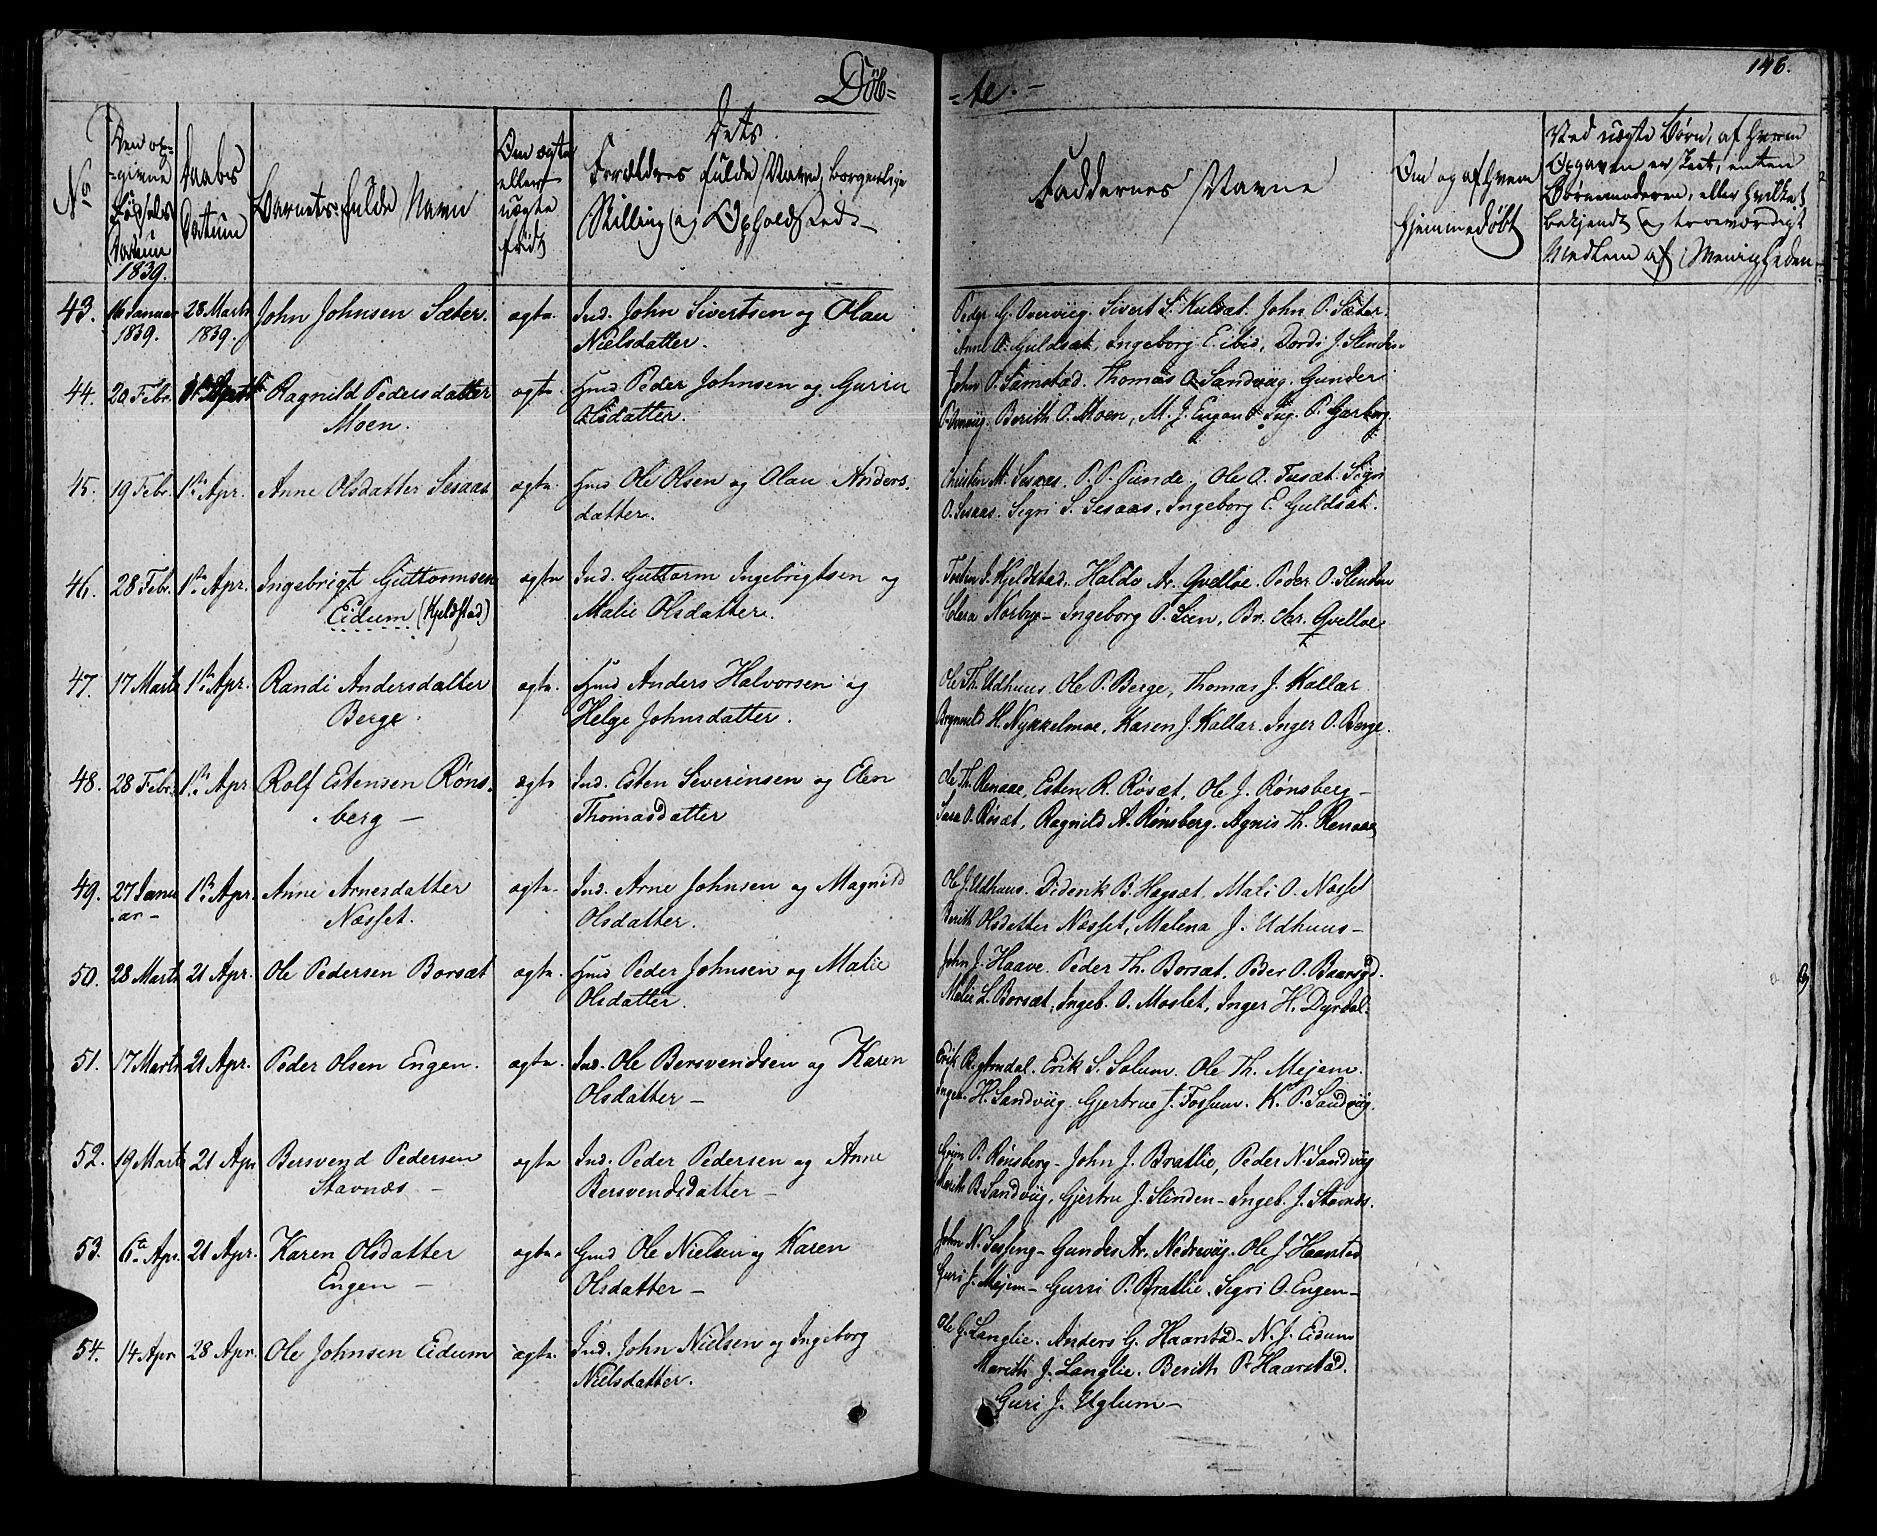 Døb=
=te.-
146.
No
Den op-
-givne
Fødsels
Datum
1839.
Daabs
Datum
Barnets fulde Navn
Om ægte
eller
uægte
født
Dets
Forældres fulde Navne, borgerlige
Stilling og Opholdsted-
Faddernes Navne
Om og af hvem
hjemmedøbt
Ved uægte Børn, af hvem
Opgaven er skeet, enten
Barnemoderen, eller hvilket
bekjendt og troeværdigt
Medlem af Menigheden-
43. 16 Januar 28 Marts John Johnsen Sæter. ægte. Ind. John Sivertsen og Olau
1839. 1839. Nielsdatter.
Peder G. Overviig. Sivert S. Kulsæt. John P. Sæter.
Anne O. Guldsæt, Ingeborg E. Eibis, Dordi J. Slinden
44. 20 Febr. Ragnild Pedersdatter ægte. Huus Peder Johnsen og Gurie
Moen. Olsdatter.
John O. Samstad. Thomas O. Sandviig. Gunder
Berith O. Moen, M. J. Engen Ing. P. Garberg.
45. 19 Febr. 1ste Apr. Anne Olsdatter Sesaas ægte. Huus Ole Olsen og Olau Anders.
datter.
Christen M. Sesaas. P. P. Sunde, Ole O. Fusæt. Sigri
O. Sesaas. Sigri S. Sesaas, Ingeborg E. Guldsæt.
46. 28 Febr. 1ste Apr. Ingebrigt Guttormsen ægte Ind. Guttorm Ingebrigtsen og
Eidum (Kjeldstad) Malie Olsdatter.
J. Kjeldstad. Haldo Ar. Qvelloe. Peder O. Slinden
Clara Norbye- Ingeborg O. Lien, Br. Chr. Qvelloe
47. 17 Marts 1ste Apr. Randi Andersdatter ægte. Huus Anders Halvorsen og
Berge. Helge Johnsdatter.
Ole Th. Udhuus. Ole P. Berge, Thomas J. Kallar
Brynnild H. Nykkelmoe, Karen J. Kallar. Inger O. Berge.
48. 28 Febr. 1ste Apr. Rolf Estensen Røns- ægte Ind. Esten Severinsen og Elen
berg - Thomasdatter
Ole Th. Renaae, Esten R. Røsæt, Ole J. Rønsberg-
O. Røsæt, Ragnild A. Rønsberg. Agnis Th. Renaae
49. 27 Janu 1ste Apr. Anne Arnesdatter ægte. Ind. Arne Johnsen og Magnild
ar- Næsset. Olsdatter.
Ole J. Udhuus. Diderik B. Hagsæt. Mali O. Næsset
Berith Olsdatter Næsset, Malena J. Udhuus-
50. 28 Marts 21 Apr. Ole Pedersen Borsæt ægte. Huus Peder Johnsen og Malie
Olsdatter.
John J. Haave. Peder Th. Borsæt. Ber O. Baarsgd.
Malie L. Borsæt, Ingeb. O. Moslet, Inger H. Dyrdal.
51. 17 Marts 21 Apr. Peder Olsen Engen. ægte. Ind. Ole Bersvendsen og Karen
Olsdatter-
Erik B. Amdal. Erik S. Solum. Ole Th. Mejem.
H. Sandviig. Gjertrue J. Fossum. K. P. Sandviig.
52. 19 Marts 21 Apr Bersvend Pedersen ægte Ind. Peder Pedersen og Anne
Stavnæs - Bersvendsdatter-
Grim P. Rønsberg- John J. Bratlie, Peder N. Sandviig
Marith B. Sandviig, Gjertru J. Slinden- Ingeb. J. Stavnæs.
53. 6te Apr. 21 Apr. Karen Olsdatter ægte. Huus Ole Nielsen og Karen
Engen - Olsdatter-
John N. Sessing- Gundes Ar. Nedreviig. Ole J. Haarstad
Guri J. Mejem- Gurri P. Bratlie. Sigri O. Engen-
54. 14 Apr 28 Apr. Ole Johnsen Eidum ægte. Ind. John Nielsen og Ingeborg
Nielsdatter.
Ole G. Langlie. Anders G. Haarstad- N. J. Eidum
Marith J. Langlie. Berith P. Haarstad.
Guri J. Uglum-